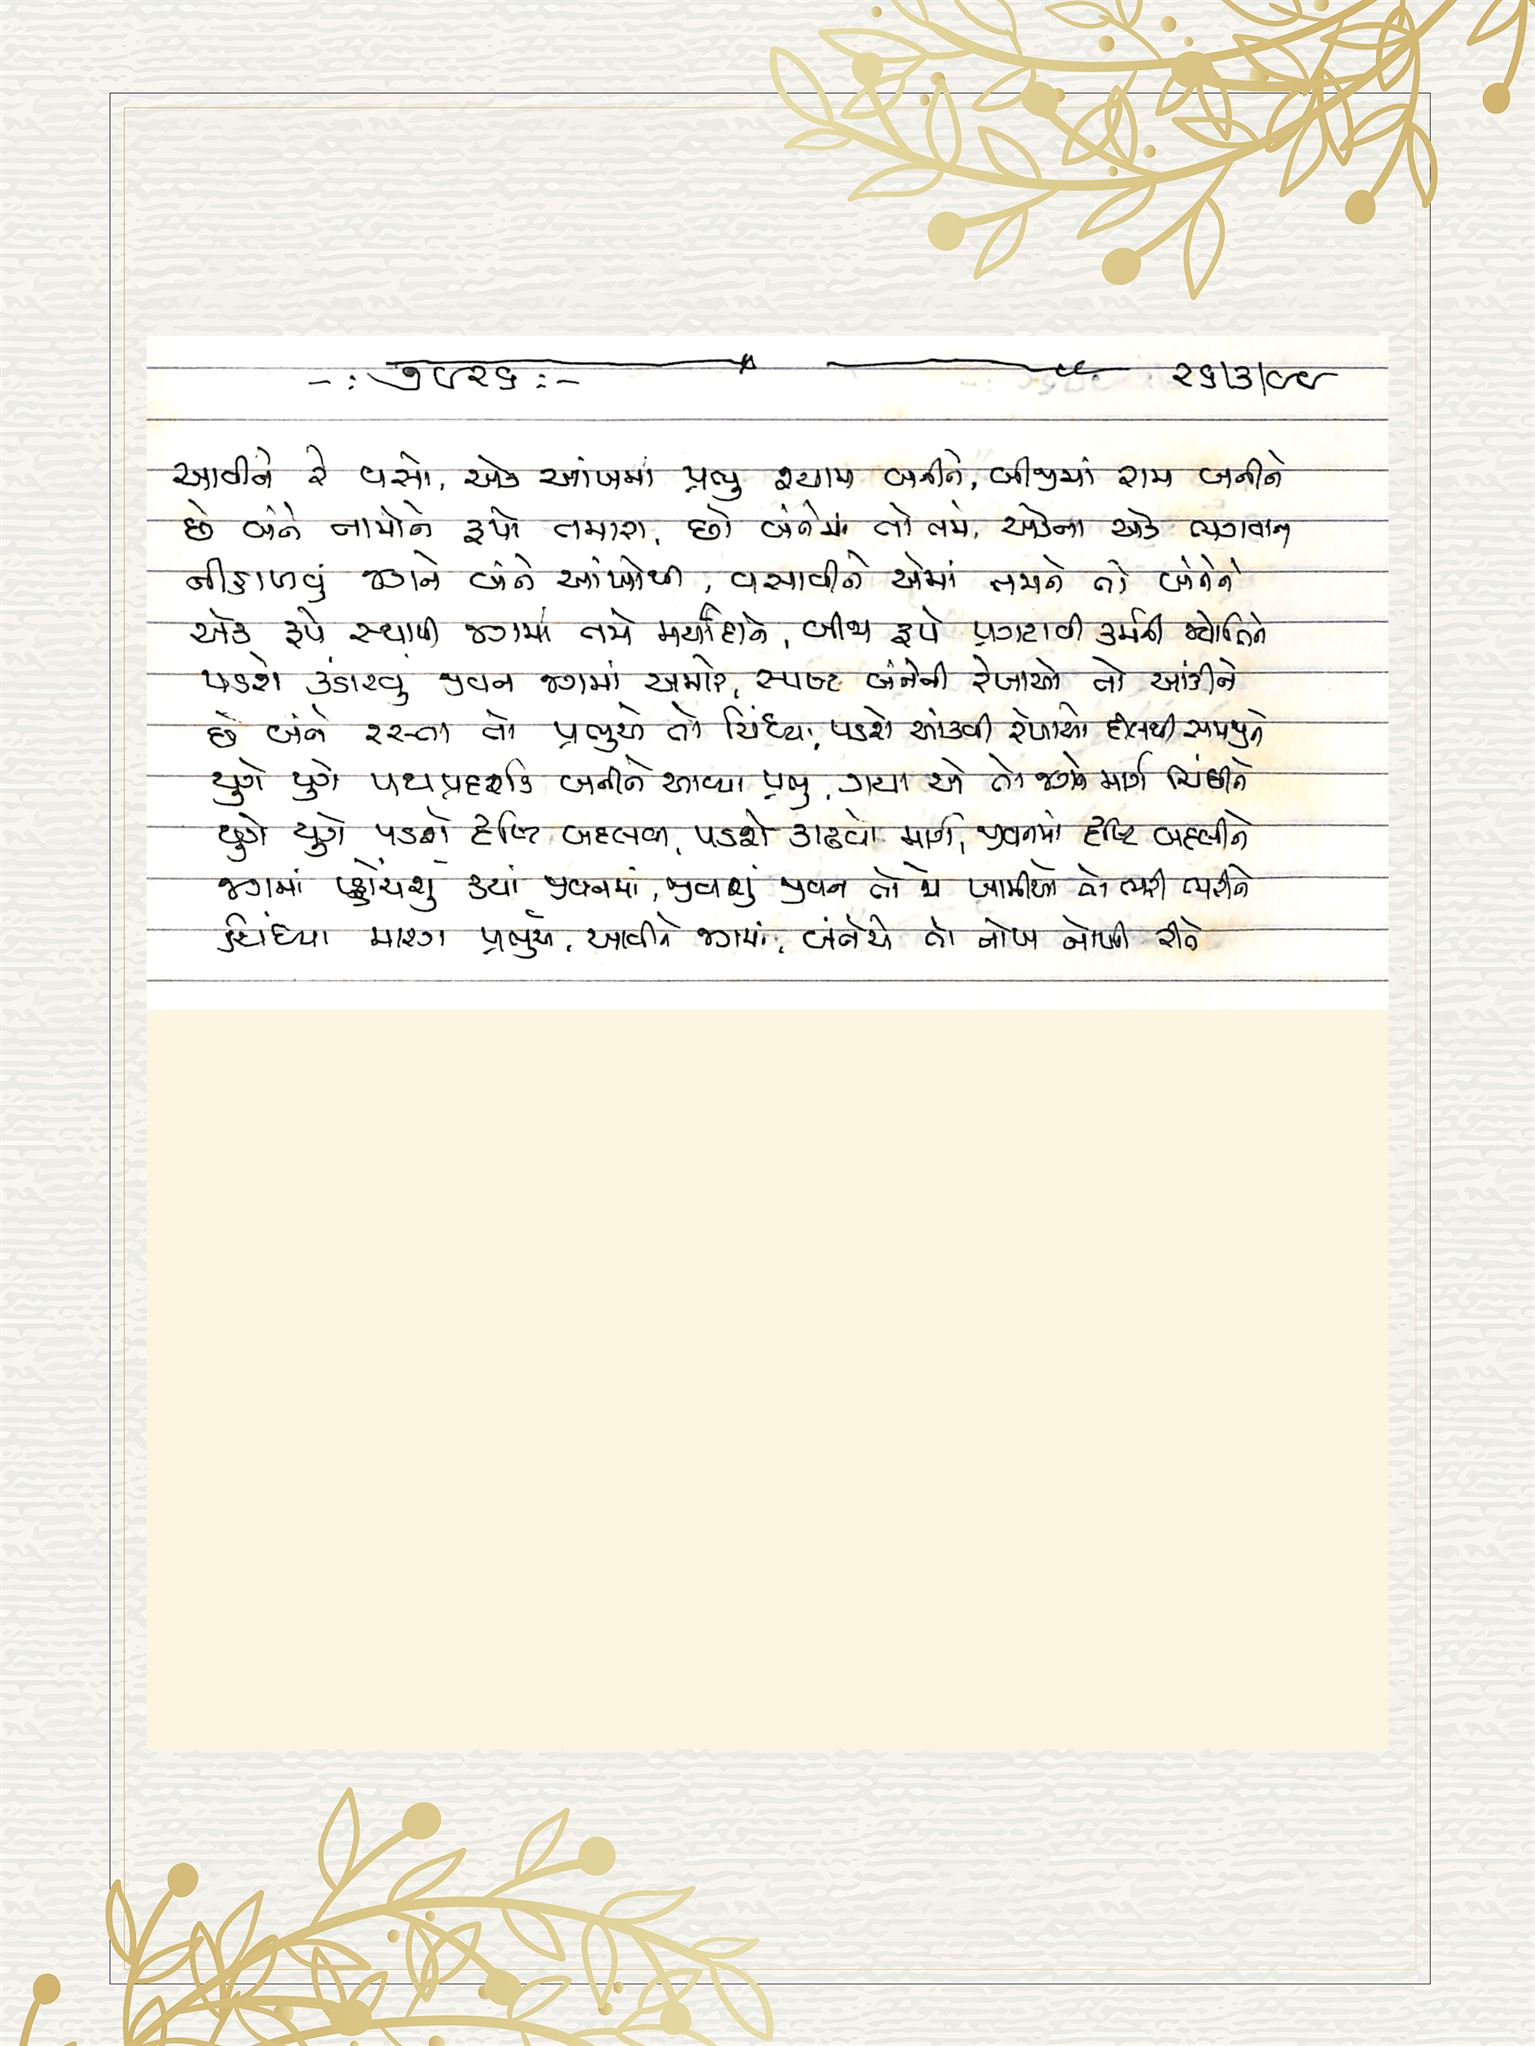 -: ૭૯૨૬ :- ૨૬/૩/૯૯
આવીને રે વસો, એક આંખમાં પ્રભુ શ્યામ બનીને, બીજીમાં રામ બનીને
છે બંને નામોને રૂપો તમારા, છો બંનેમાં તો તમે, એકના એક ભગવાન
નીહાળવું જગને બંને આંખોથી, વસાવીને એમાં તમને તો બંનેને
એક રૂપે સ્થાપી જગમાં તમે મર્યાદાને, બીજા રૂપે પ્રગટાવી કર્મની જ્યોતિને
પડશે કંડારવું જીવન જગમાં અમારે, સ્પષ્ટ બંનેની રેખાઓ તો આંકીને
છે બંને રસ્તા તો પ્રભુએ તો ચિંધ્યા, પડશે આંકવી રેખાઓ દિલથી સમજીને
યુગે યુગે પથપ્રદર્શક બનીને આવ્યા પ્રભુ, ગયા એ તો જગને માર્ગ ચિંધીને
યુગે યુગે પડશે દૃષ્ટિ બદલવી, પડશે કાઢવો માર્ગ, જીવનમાં દૃષ્ટિ બદલીને
જગમાં પ્હોંચશું ક્યાં જીવનમાં, જીવશું જીવન તો જે ખામીઓ તો ભરી ભરીને
ચિંધ્યા મારગ પ્રભુએ, આવીને જગમાં, બંનેએ તો નોખ નોખી રીતે